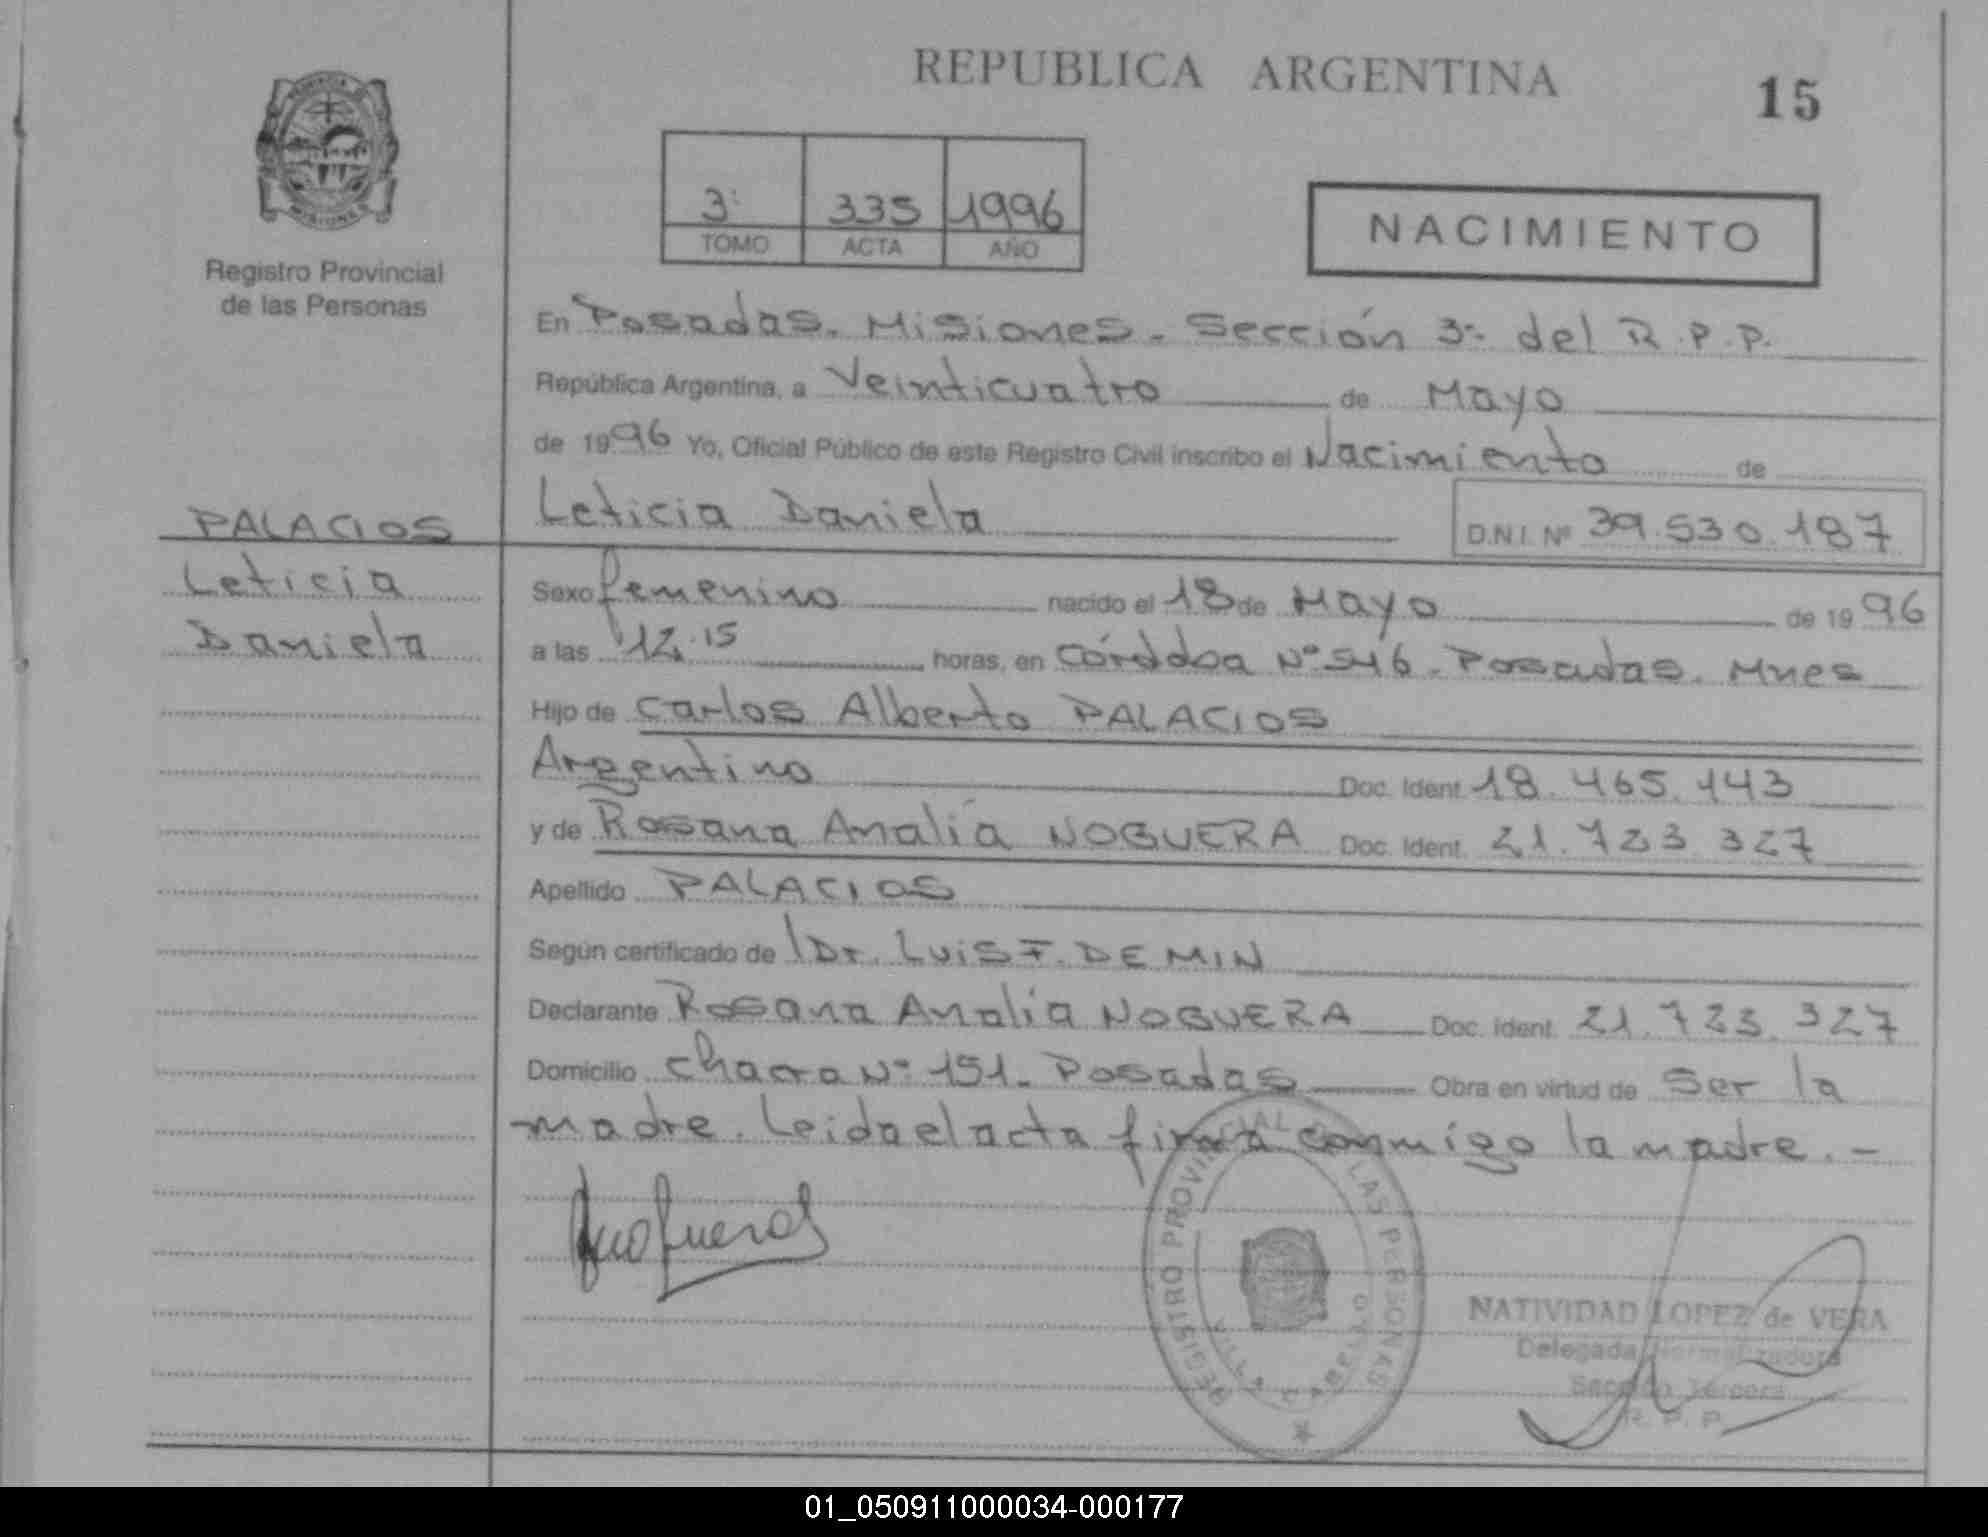 REPUBLICA ARGENTINA
15
3: 335 1996
TOMO ACTA AÑO
NACIMIENTO
Registro Provincial
de las Personas
En Posadas. Misiones. Sección 3: del R.P.P.
República Argentina, a Veinticuatro de Mayo
de 1996 Yo, Oficial Público de este Registro Civil inscribo el Nacimiento de
Leticia Daniela D.N.I. Nº 39.530.187
PALACIOS
Leticia
Daniela
Sexo femenino nacido el 18 de Mayo de 1996
a las 12.15 horas, en Córdoba Nº 546. Posadas. Mnes
Hijo de Carlos Alberto PALACIOS
Argentino Doc. Ident. 18.465.143
y de Rosana Analía NOGUERA Doc. Ident. 21.723.327
Apellido PALACIOS
Según certificado de Dr. Luis F. DEMIN
Declarante Rosana Analía NOGUERA Doc. Ident. 21.723.327
Domicilio Chacra Nº 151. Posadas Obra en virtud de ser la
madre. Leida el acta firma conmigo la madre. -
REGISTRO PROVINCIAL DE LAS PERSONAS
VILLA CABELLO
NATIVIDAD LOPEZ de VERA
Delegada Normalizadora
Sección Tercera
R. P. P.
01_050911000034-000177